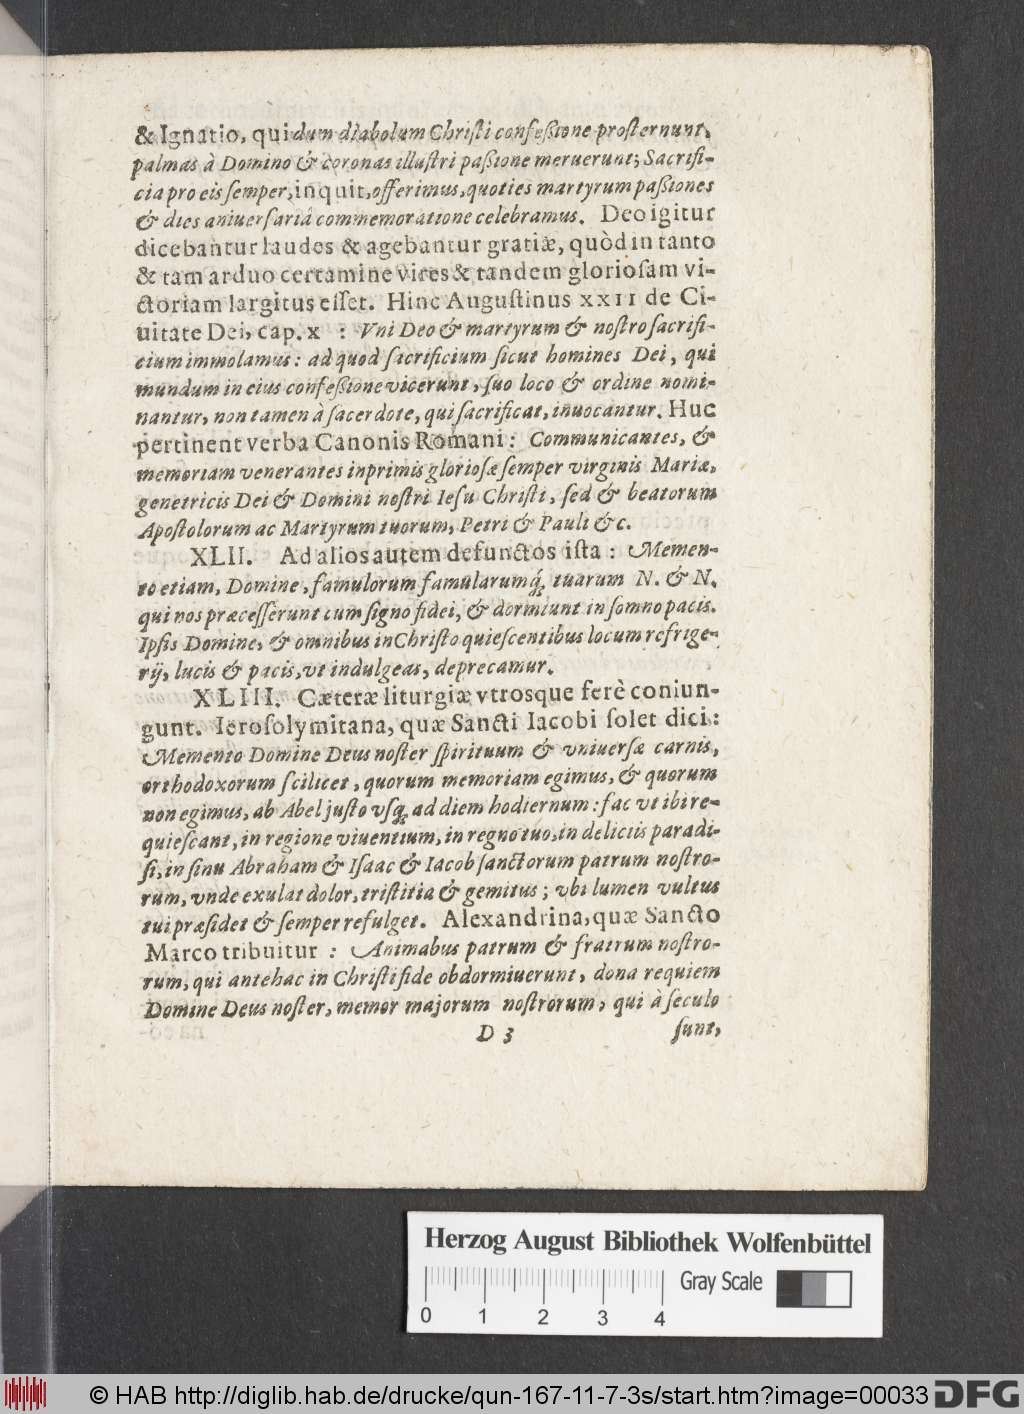 & Ignatio, qui dum diabolum Christi confeßione prosternunt,
palmas à Domino & coronas illustri paßione meruerunt; Sacrifi-
cia pro eis semper, inquit, offerimus, quoties martyrum paßiones
& dies aniuersariâ commemoratione celebramus. Deo igitur
dicebantur laudes & agebantur gratiæ, quòd in tanto
& tam arduo certamine vires & tandem gloriosam vi-
ctoriam largitus esset. Hinc Augustinus XXII de Ci-
uitate Dei, cap. x : Vni Deo & martyrum & nostro sacrifi-
cium immolamus: ad quod sacrificium sicut homines Dei, qui
mundum in eius confeßione vicerunt, suo loco & ordine nomi-
nantur, non tamen à sacerdote, qui sacrificat, inuocantur. Huc
pertinent verba Canonis Romani: Communicantes, &
memoriam venerantes inprimis gloriosæ semper virginis Mariæ,
genetricis Dei & Domini nostri Iesu Christi, sed & beatorum
Apostolorum ac Martyrum tuorum, Petri & Pauli &c.
XLII. Ad alios autem defunctos ista: Memen-
to etiam, Domine, famulorum famularumq́; tuarum N. & N.
qui nos præcesserunt cum signo fidei, & dormiunt in somno pacis.
Ipsis Domine, & omnibus in Christo quiescentibus locum refrige-
rij, lucis & pacis, vt indulgeas, deprecamur.
XLIII. Cæteræ liturgiæ vtrosque ferè coniun-
gunt. Ierosolymitana, quæ Sancti Iacobi solet dici:
Memento Domine Deus noster spirituum & vniuersæ carnis,
orthodoxorum scilicet, quorum memoriam egimus, & quorum
non egimus, ab Abel justo vsq; ad diem hodiernum: fac vt ibi re-
quiescant, in regione viuentium, in regno tuo, in deliciis paradi-
si, in sinu Abraham & Isaac & Iacob sanctorum patrum nostro-
rum, vnde exulat dolor, tristitia & gemitus; vbi lumen vultus
tui præsidet & semper refulget. Alexandrina, quæ Sancto
Marco tribuitur : Animabus patrum & fratrum nostro-
rum, qui antehac in Christi fide obdormiuerunt, dona requiem
Domine Deus noster, memor majorum nostrorum, qui à seculo
D 3 sunt,
Herzog August Bibliothek Wolfenbüttel
Gray Scale
0 1 2 3 4
© HAB http://diglib.hab.de/drucke/qun-167-11-7-3s/start.htm?image=00033 DFG